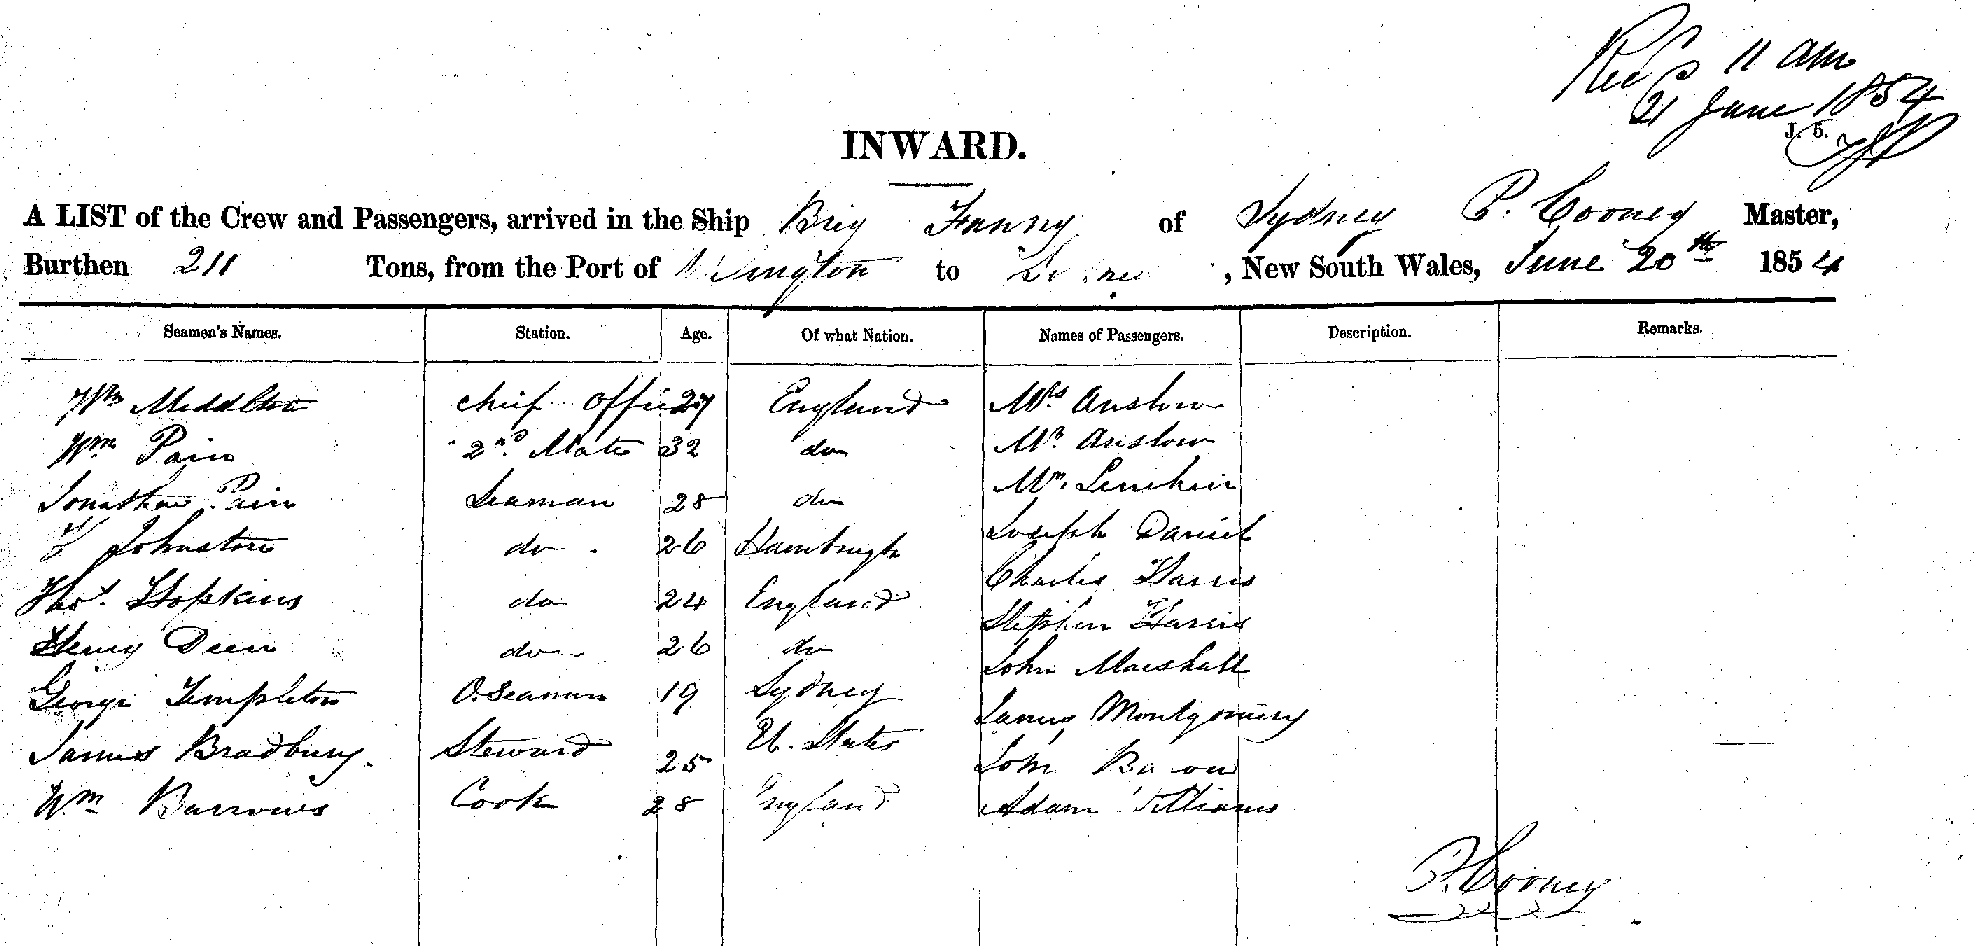 Recd 11 am
21 June 1854
J. 5.
INWARD.
A LIST of the Crew and Passengers, arrived in the Ship Brig Fanny of Sydney P. Cooney Master,
Burthen 211 Tons, from the Port of to , New South Wales, June 20th 1854
Seamen's Names. Station. Age. Of what Nation. Names of Passengers. Description. Remarks.
Wm Middleton chief offi 27 England Mrs Anslow
Wm Pain 2nd Mate 32 do Mr Anslow
Jonathan Pain Seaman 28 do Mr. Lenihan
Johnston do 26 Hamburgh Joseph Daniel
Thos. Hopkins do 24 England Charles Harris
Henry Deen do 26 do Stephen Harris
George Templeton O. Seaman 19 Sydney John Marshall
James Bradbury. Steward 25 U. States James Montgomery
Wm Burrows Cook 28 England John
Adam Williams
P. Cooney